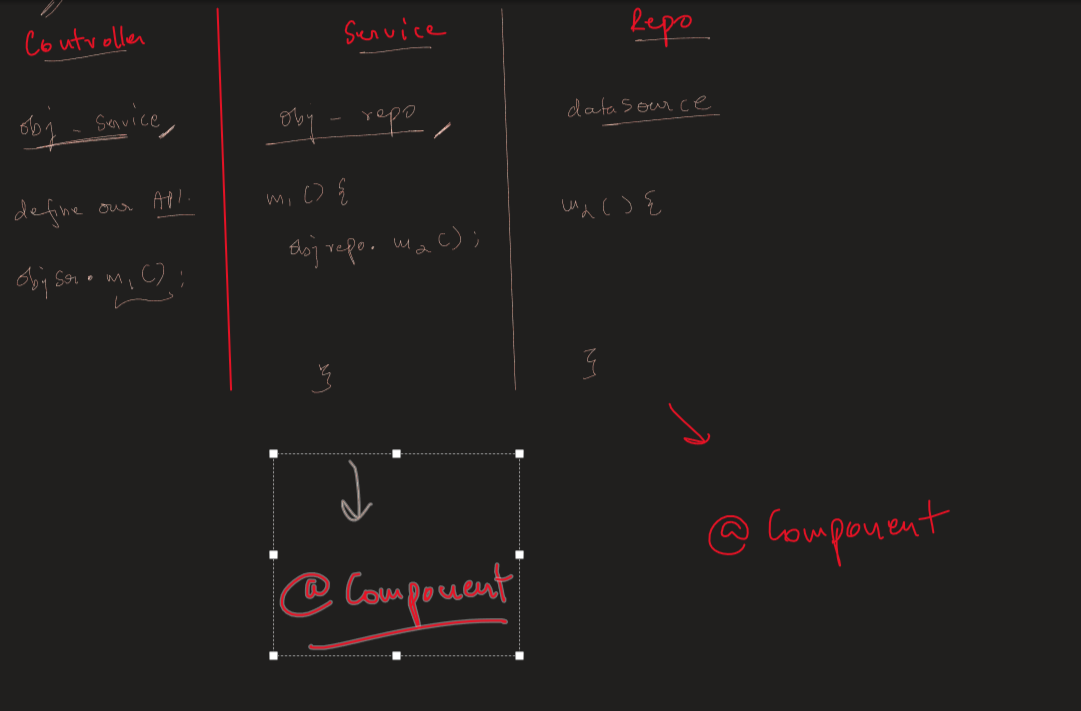 Controller
obj - Service
define our API.
obj Ser. m1();
Service
obj - repo
m1() {
obj repo. m2();
}
Repo
datasource
m2() {
}
@ Component
@ Component